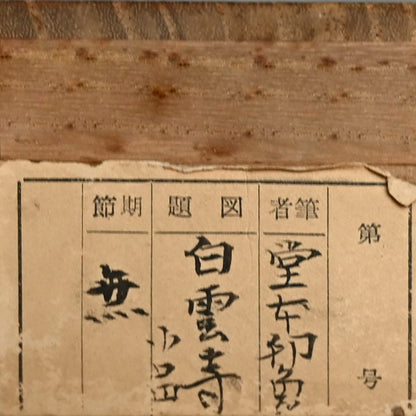 第 号
筆者
堂本印象
図題
白雲寺
期節
無